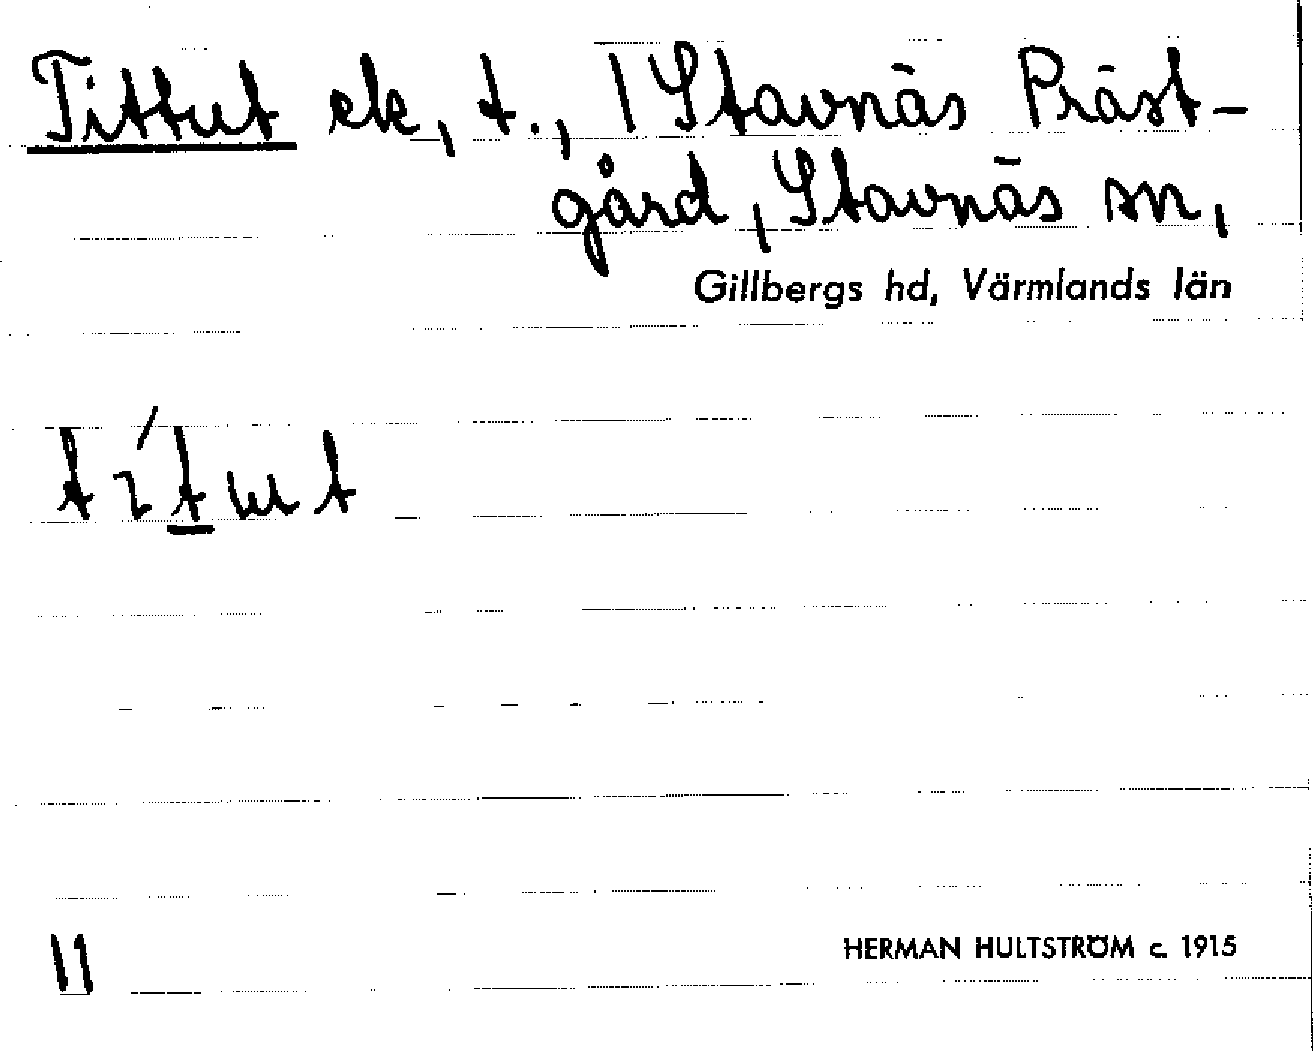 Tittut ek, t., / Stavnäs Präst-
gård, Stavnäs sn,
Gillbergs hd, Värmlands län
11
HERMAN HULTSTRÖM c. 1915